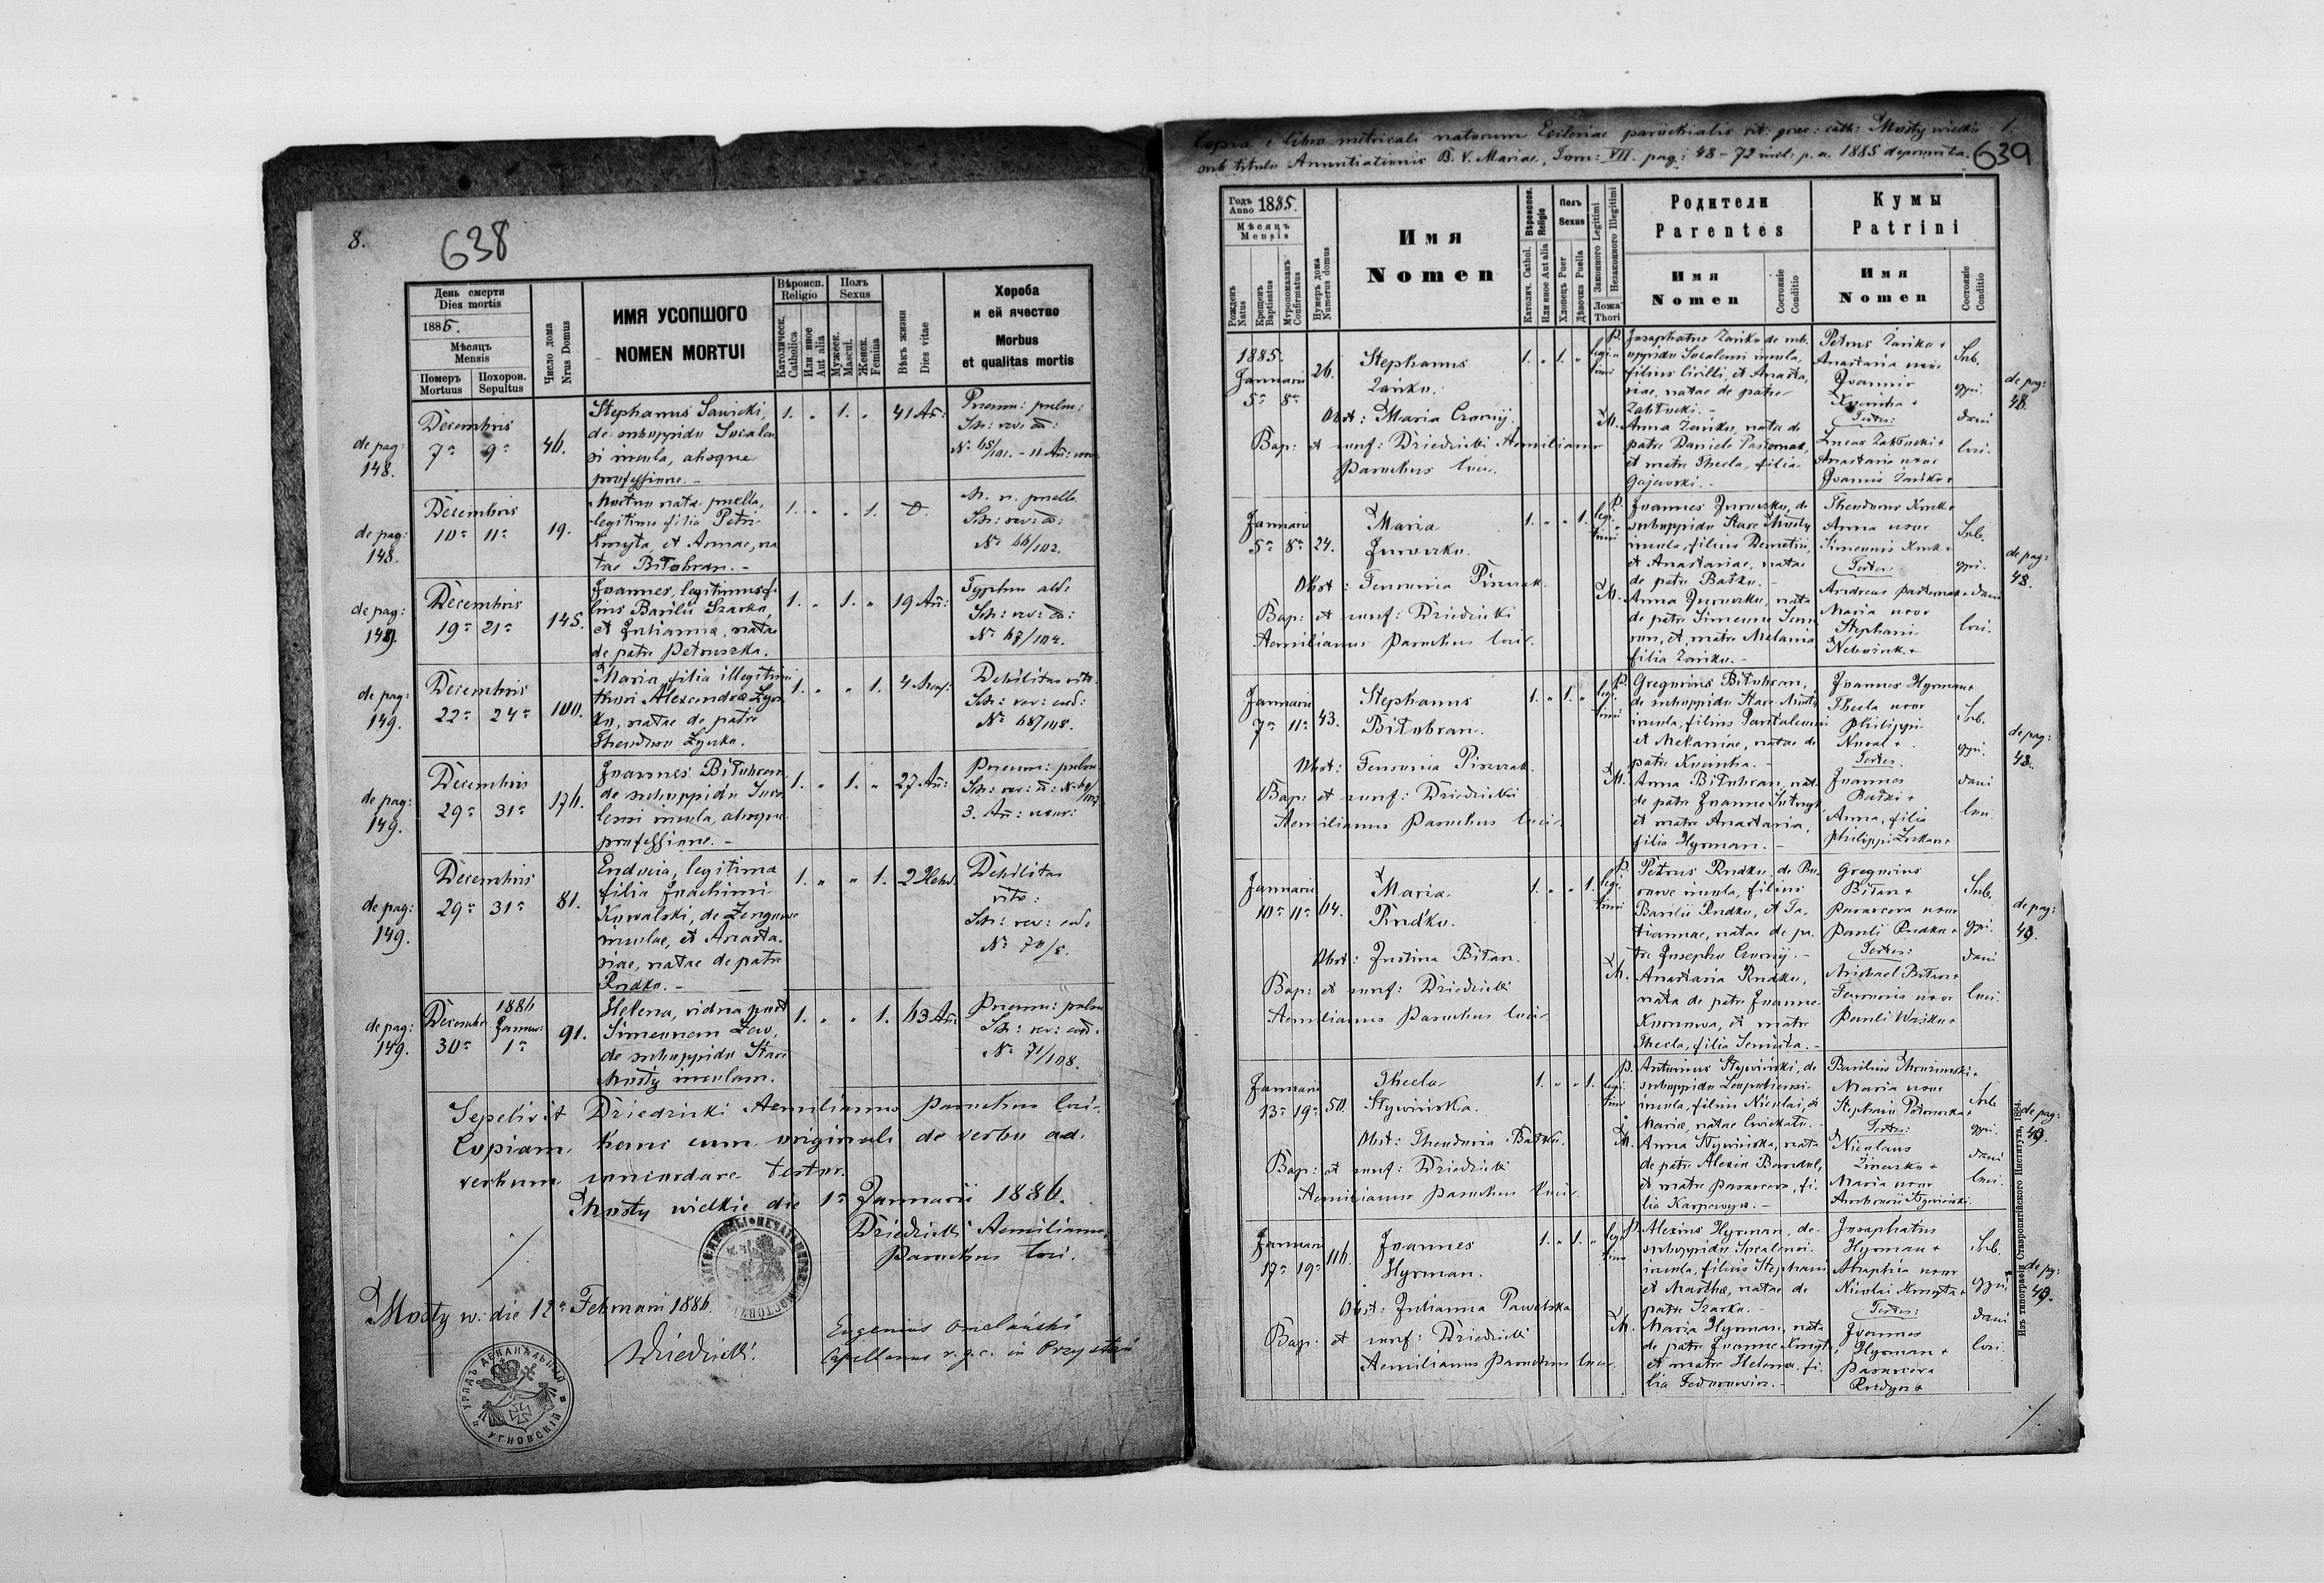 8.
638
День смерти
Dies mortis
1885.
Мѣсяцъ
Mensis
Померъ
Mortuus
Похорон.
Sepultus
Число дома
Nrus Domus
ИМЯ УСОПШОГО
NOMEN MORTUI
Вѣроисп.
Religio
Католическ.
Catholica
Или иное
Aut alia
Полъ
Sexus
Мужеск.
Mascul.
Женск.
Femina
Вѣкъ жизни
Dies vitae
Хороба
и ей ячество
Morbus
et qualitas mortis
de pag:
148.
Decembris
7a 9a
46.
Stephanus Sawicki,
de suboppido Socalen
si incola, absque
professione. -
1. " 1. " 41 An:
Pneum: pulm:
de pag:
148.
Decembris
10a 11a
19.
Mortuo nata puella,
legitima filia Petri
Kmyta, et Annae, na
tae Bitobran. -
1. " " 1.
M. n. puella
No 66/102.
de pag:
149.
Decembris
19a 21a
145.
Joannes, legitimus fi
lius Basilii Szarko,
et Julianna, natae
de patre Petruszka.
1. " 1. " 19 An:
Typhus abd:
No 67/104.
de pag:
149.
Decembris
22a 24a
100.
Maria, filia illegitimi
thori Alexandrae Zyn
ko, natae de patre
Theodoro Zynko.
1. " " 1. 4 Mens:
Debilitas vit:
No 68/105.
de pag:
149.
Decembris
29a 31a
176.
Joannes Bitobran
de suboppido Soca
lensi incola, absque
professione. -
1. " 1. " 27 An:
Pneum: pulm
3. An: uxor:
de pag:
149.
Decembris
29a 31a
81.
Eudocia, legitima
filia Joachimi
Kowalski, de
incolae, et Anasta.
siae, natae de patre
Rudko. -
1. " " 1. 2 Hebd.
Debilitas
vit:
No 70/5.
de pag:
149.
Decembr. 1886 Januar:
30a 1a
91.
Helena, vidua post
Simeonem Lew,
de suboppido Stare
Mosty incolam.
1. " " 1. 63 An:
Pneum: pulm
No 71/108.
Sepelivit Dziedzicki Aemilianus Parochus loci.
Copiam hanc cum originali de verbo ad.
verbum concordare testor.
Mosty wielkie die 1a Januarii 1886.
Dziedzicki Aemilianus
Parochus loci.
Mosty w: die 12a Februarii 1886.
Dziedzicki.
Eugenius Omelański
Capellanus r. g. c. in Przystań
УРЯДЪ ДЕКАНАЛЬНЫЙ
УГНОВСКІЙ
Copia e libro metricali natorum Ecclesiae parochialis rit: graec: cath: Mosty wielkie 1.
sub titulo Annuntiationis B. V. Mariae, Tom: VII. pag: 48-72 incl. p. a. 1885 deprompta.
639
Годъ
Anno 1885.
Мѣсяцъ
Mensis
Рожденъ
Natus
Крещенъ
Baptisatus
Муропомазанъ
Confirmatus
Нумеръ дома
Numerus domus
Имя
Nomen
Вѣроиспов.
Religio
Католич. Cathol.
Или иное Aut alia
Полъ
Sexus
Хлопецъ Puer
Дѣвочка Puella
Законного Legitimi
Незаконного Illegitimi
Ложа
Thori
Родители
Parentes
Имя
Nomen
Состояніе
Conditio
Кумы
Patrini
Имя
Nomen
Состояніе
Conditio
1885.
Januarii
5a 8a
26.
Stephanus
Zańko.
1. " 1. " legi timi
Obst: Maria Czornij.
Bap: et conf: Dziedzicki Aemilianus
Parochus loci.
P. Josaphatus Zańko de sub.
oppido Socalensi incola,
filius Cirilli, et Anasta,
siae, natae de patre
Zabłocki. -
M. Anna Zańko, nata de
patre Daniele Pasternak,
et matre Thecla, filia
Gajewski. -
Petrus Zańko +
Anastasia uxor
Joannis
Kucinka +
Testes:
Lucas Zabłocki +
Anastasia uxor
Joannis Zańko +
Sub.
oppi.
dani
loci.
de pag:
48.
Januarii
5a 8a 24.
Maria
Juroczko.
1. " " 1. legi timi
Obst: Fenronia Pisczak.
Bap: et conf: Dziedzicki
Aemilianus Parochus loci.
P. Joannes Juroczko, de
suboppido Stare Mosty
incola, filius Demetrii,
et Anastasiae, natae
de patre Baśko. -
M. Anna Juroczko, nata
de patre Simeone
et matre Melania
filia Zańko. -
Theodorus Kmit +
Anna uxor
Simeonis Kmit +
Testes:
Andreas Pasternak +
Maria uxor
Stephani
Sub.
oppi.
dani
loci.
de pag:
48.
Januarii
7a 11a 43.
Stephanus
Bitobran.
1. " 1. " legi timi
Obst: Fenronia Pisczak.
Bap: et conf: Dziedzicki
Aemilianus Parochus loci.
P. Gregorius Bitobran,
de suboppido Stare Mosty
incola, filius Pantalemoni
et Melaniae, natae de
patre Kucinka. -
M. Anna Bitobran, nata
de patre Joanne
et matre Anastasia,
filia Hyrman. -
Joannes Hyrman +
Thecla uxor
Philippi
Testes.
Joannes
Baśki +
Anna, filia
Philippi
Sub.
oppi.
dani
loci.
de pag:
48.
Januarii
10a 11a 64.
Maria.
Rudko.
1. " " 1. legi timi
Obst: Justina Bitan.
Bap: et conf: Dziedzicki
Aemilianus Parochus loci.
P. Petrus Rudko, de Bo
rowe incola, filius
Basilii Rudko, et Ta.
tiannae, natae de pa.
tre Josepho Czornij. -
M. Anastasia Rudko,
nata de patre Joanne
et matre
Thecla, filia
Gregorius
Bitan +
Parasceva uxor
Pauli Rudko +
Testes:
Michael Bitan +
Fenronia uxor
Pauli Waśko +
Sub.
oppi.
dani
loci.
de pag:
49.
Januarii
13a 19a 50.
Thecla
Stywińska.
1. " " 1. legi timi
Obst: Theodosia Baśko.
Bap: et conf: Dziedzicki
Aemilianus Parochus loci.
P. Antonius Stywiński, de
suboppido Leopoliensi
incola, filius Nicolai, et
Mariae, natae
M. Anna Stywińska, nata
de patre Alexio
et matre Parasceva, fi.
lia
Basilius
Maria uxor
Stephani
Testes:
Nicolaus
Maria uxor
Ambrosii Stywiński.
Sub
oppi.
dani
loci.
de pag:
49.
Januarii
17a 19a 116.
Joannes
Hyrman.
1. " 1. " legi timi
Obst: Julianna Pawelska
Bap: et conf: Dziedzicki
Aemilianus Parochus loci.
P. Alexius Hyrman, de
suboppido Socalensi
incola, filius Stephani
et Marthae, natae de
patre Szarko. -
M. Maria Hyrman, nata
de patre Joanne Kmyta,
et matre Helena, fi.
lia Fedorowicz. -
Josaphatus
Hyrman +
uxor
Nicolai Kmyta +
Testes:
Joannes
Hyrman +
Parasceva
Sub.
oppi
dani
loci.
de pag:
49.
Изъ типографіи Ставропигійского Института, 1884.